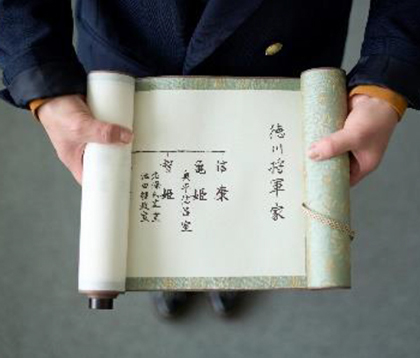 徳川将軍家
信康
亀姫
奥平信昌室
督姫
池田輝政室